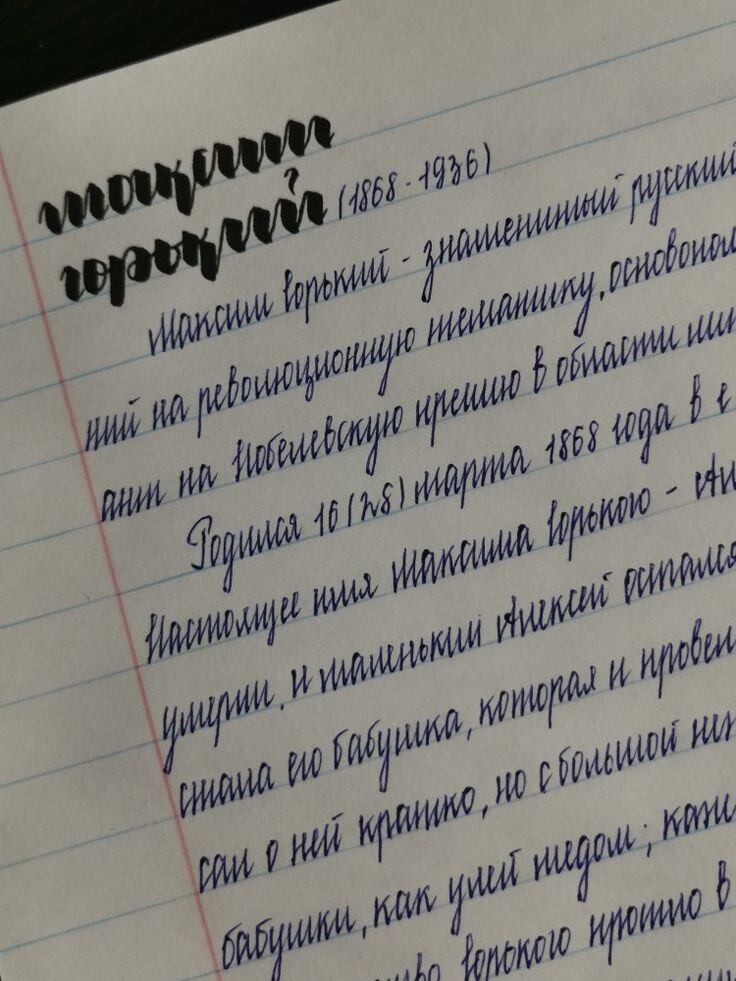 максим
горький (1868-1936)
Максим Горький - знаменитый русский
ний на революционную тематику, основопол
ант на Нобелевскую премию в области лит
Родился 16 (28) марта 1868 года в г
Настоящее имя Максима Горького - Ал
умерли, и маленький Алексей остался
стала его бабушка, которая и провел
сал о ней кратко, но с большой неж
бабушки, как улей медом; каж
тво Горького прошло в